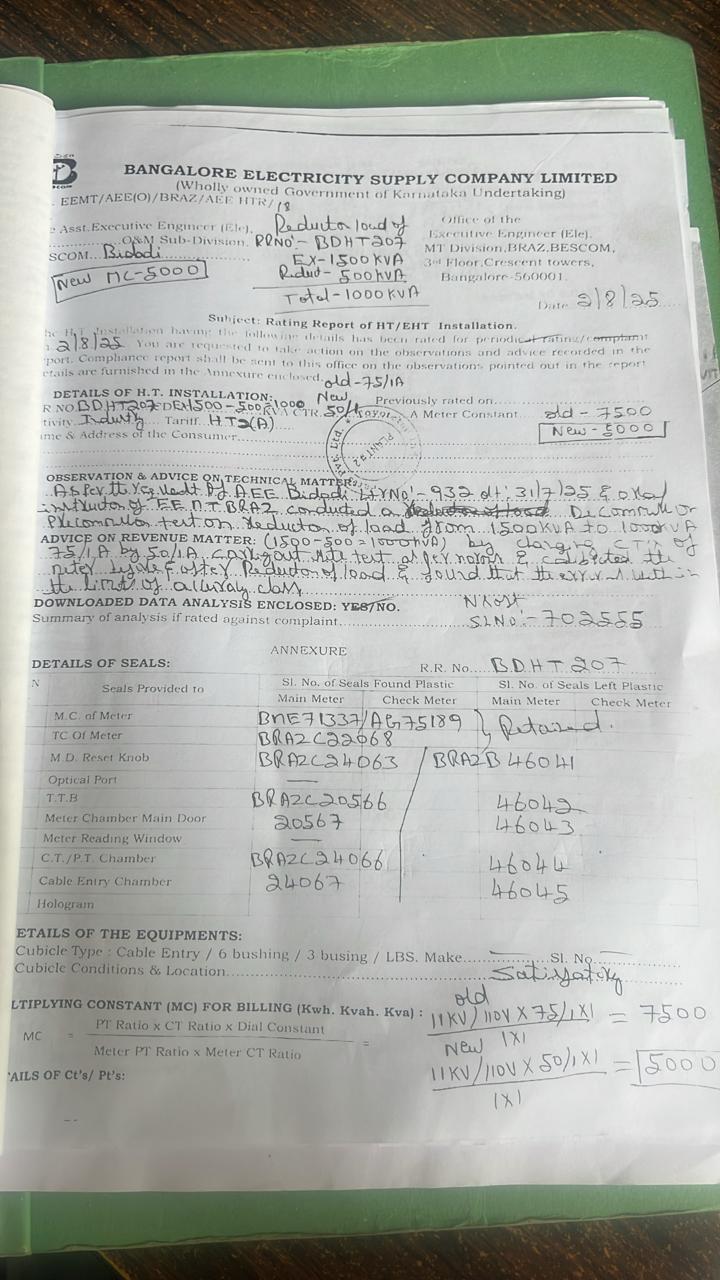 BANGALORE ELECTRICITY SUPPLY COMPANY LIMITED
(Wholly owned Government of Karnataka Undertaking)
EEMT/AEE(O)/BRAZ/AEE HTR/18
Asst.Executive Engineer (Ele),
O&M Sub-Division,
SCOM...Bidadi
New MC-5000
Reducton load of
RRNO:- BDHT207
EX-1500 KVA
Reduct- 500KVA
Total-1000KVA
Office of the
Executive Engineer (Ele).
MT Division,BRAZ.BESCOM,
3rd Floor,Crescent towers,
Bangalore-560001.
Date 2/8/25
Subject: Rating Report of HT/EHT Installation.
he H.T Installation having the following details has been rated for periodical rating/complaint
2/8/25 You are requested to take action on the observations and advice recorded in the
port. Compliance report shall be sent to this office on the observations pointed out in the report
etails are furnished in the Annexure enclosed.
old-75/1A
DETAILS OF H.T. INSTALLATION: New Previously rated on
R NO BDHT207 1500-500=1000 KVA CTR. 50/1 A Meter Constant old - 7500
tivity Industry Tariff HT2(A) New-5000
me & Address of the Consumer
Pvt. Ltd.
PLANT # 2
OBSERVATION & ADVICE ON TECHNICAL MATTER:
As per the request of AEE Bidadi Ltr No:- 932 dt: 31/7/25 & oral
instruction of EE MT BRAZ conducted a
test on reducton of load from 1500KVA to 1000KVA
ADVICE ON REVENUE MATTER: (1500-500=1000KVA) by changing CT's of
75/1A by 50/1A carryout site test as per norms & calibrated the
meter after Reducton of load & found that the error is within
the limit of accuracy class
DOWNLOADED DATA ANALYSIS ENCLOSED: YES/NO.
Summary of analysis if rated against complaint.
SLNO:- 702555
ANNEXURE
DETAILS OF SEALS: R.R. No. BDHT 207
N Seals Provided to Sl. No. of Seals Found Plastic Sl. No. of Seals Left Plastic
Main Meter Check Meter Main Meter Check Meter
M.C. of Meter BNE71337/AG75189 Retained.
TC Of Meter BRAZC22068
M.D. Reset Knob BRAZC24063 BRAZB 46041
Optical Port
T.T.B BRAZC20566 46042
Meter Chamber Main Door 20567 46043
Meter Reading Window
C.T./P.T. Chamber BRAZC24066 46044
Cable Entry Chamber 24067 46045
Hologram
ETAILS OF THE EQUIPMENTS:
Cubicle Type : Cable Entry / 6 bushing / 3 busing / LBS. Make Sl. No.
Cubicle Conditions & Location Satisfactory
LTIPLYING CONSTANT (MC) FOR BILLING (Kwh. Kvah. Kva) :
MC = PT Ratio x CT Ratio x Dial Constant
Meter PT Ratio x Meter CT Ratio
=
old
11KV/110V X 75/1X1 = 7500
1X1
New
11KV/110V X 50/1X1 = 5000
1X1
AILS OF Ct's/ Pt's: